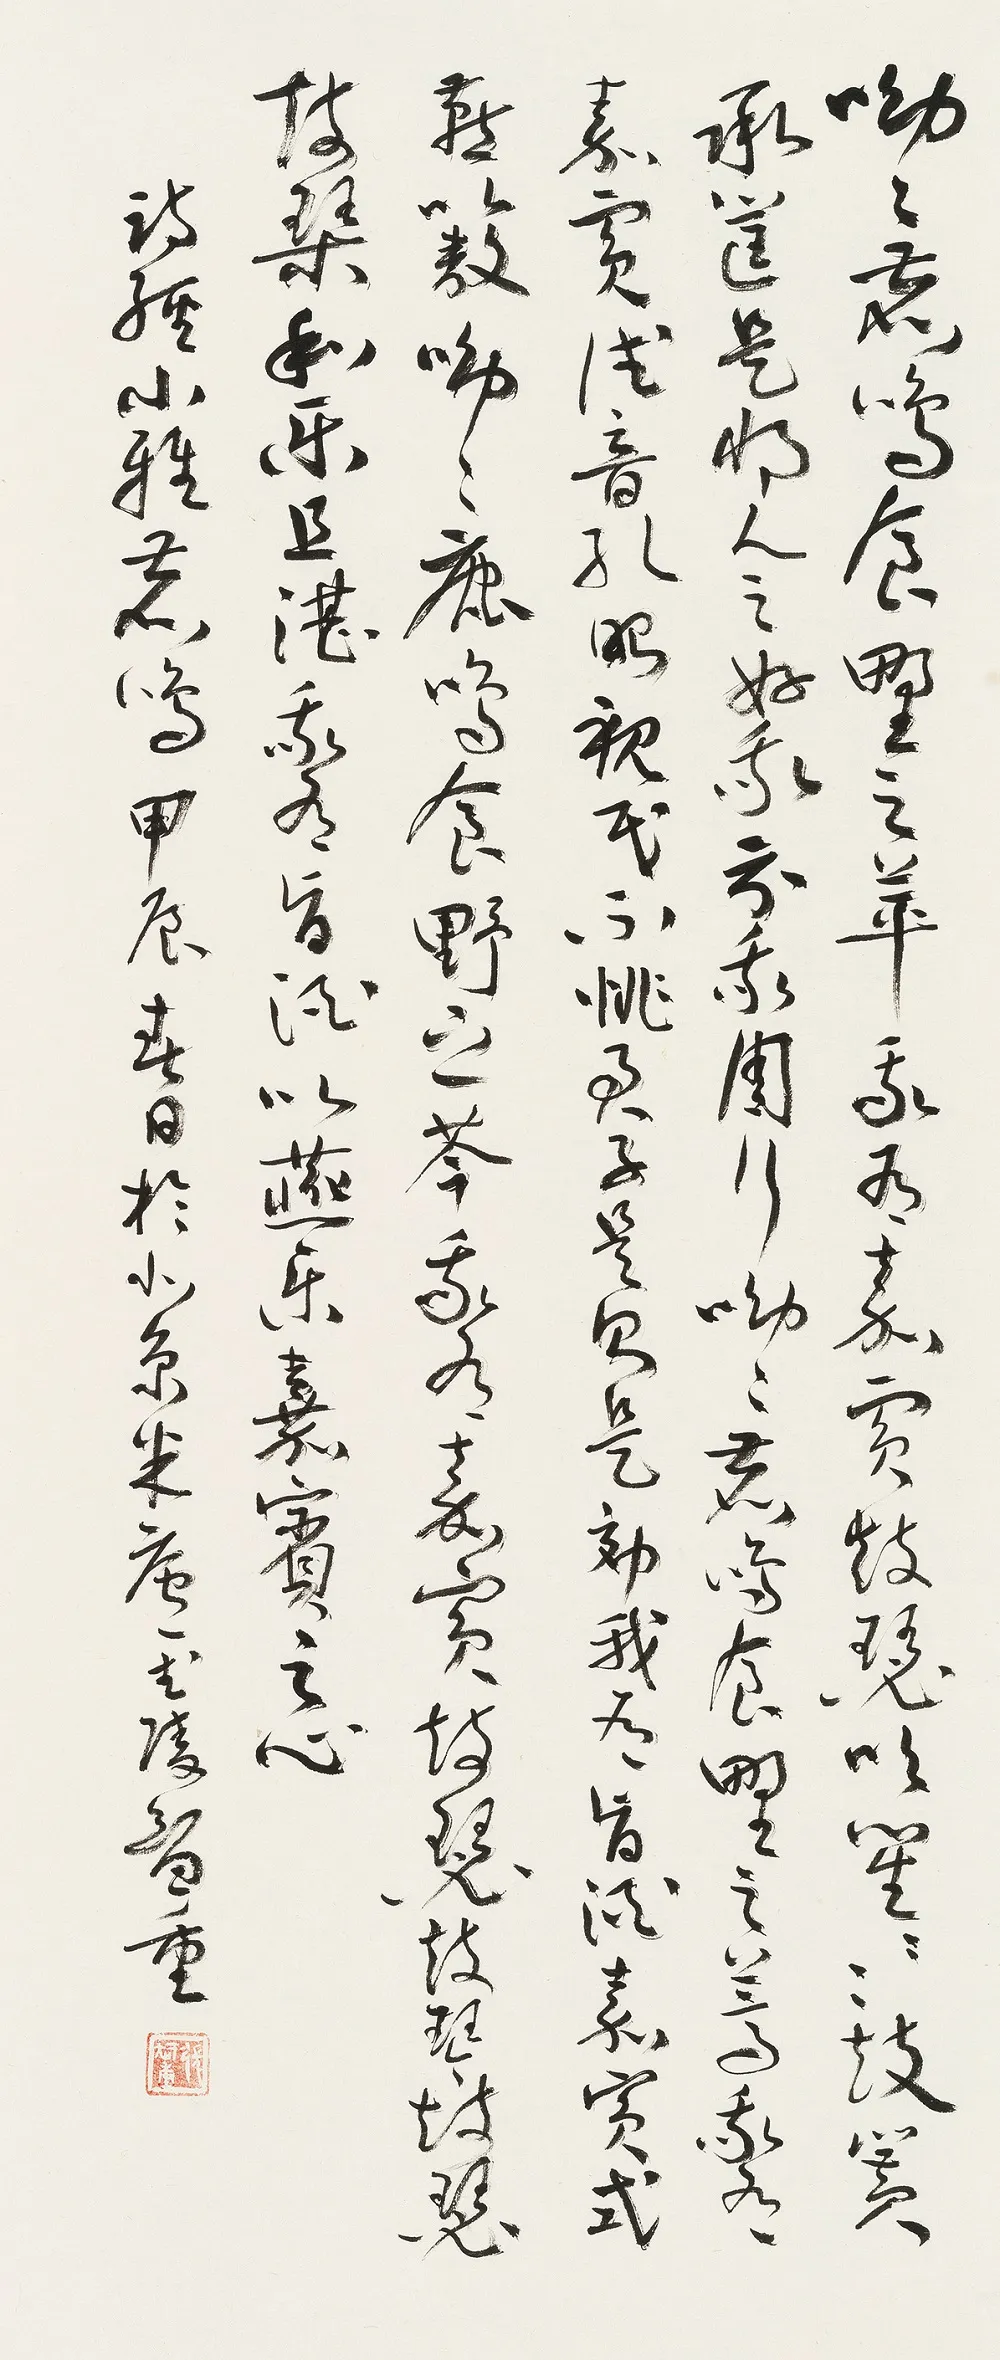 呦〻鹿鳴食野之苹我有嘉賓鼓瑟吹笙〻〻鼓簧
承筐是將人之好我示我周行呦〻鹿鳴食野之蒿我有
嘉賓德音孔昭視民不恌君子是則是効我有旨酒嘉賓式
燕以敖呦〻鹿鳴食野之芩我有嘉賓鼓瑟鼓琴鼓瑟
鼓琴和樂且湛我有旨酒以燕樂嘉賓之心
詩經小雅鹿鳴甲辰春日於北京米庵武陵智重
張智重